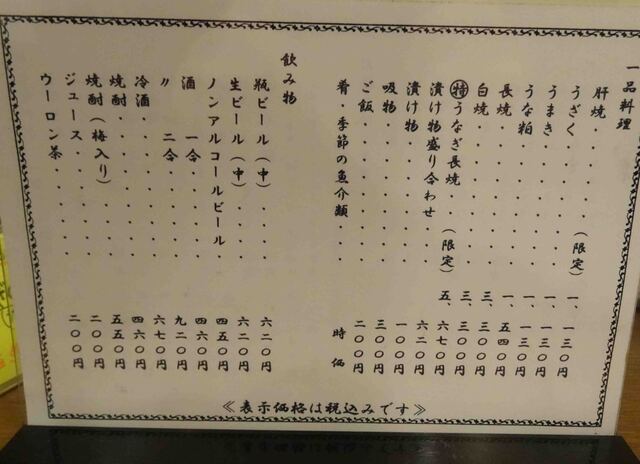 一品料理
肝焼・・・・・・（限定）一、一三〇円
うざく・・・・・・一、一三〇円
うまき・・・・・・一、一三〇円
うな粕・・・・・・五四〇円
長焼・・・・・・三、三〇〇円
白焼・・・・・・三、三〇〇円
㊕うなぎ長焼・（限定）五、六七〇円
漬け物盛り合わせ・・六二〇円
漬け物・・・・・・一〇〇円
吸物・・・・・・三〇〇円
ご飯・・・・・・二〇〇円
肴・季節の魚介類・・・時価
飲み物
瓶ビール（中）・・・・六二〇円
生ビール（中）・・・・六二〇円
ノンアルコールビール・四五〇円
酒　一合・・・・四六〇円
〃　二合・・・・九二〇円
冷酒・・・・・・六七〇円
焼酎・・・・・・四六〇円
焼酎（梅入り）・・・五五〇円
ジュース・・・・・二〇〇円
ウーロン茶・・・・・二〇〇円
≪表示価格は税込みです≫